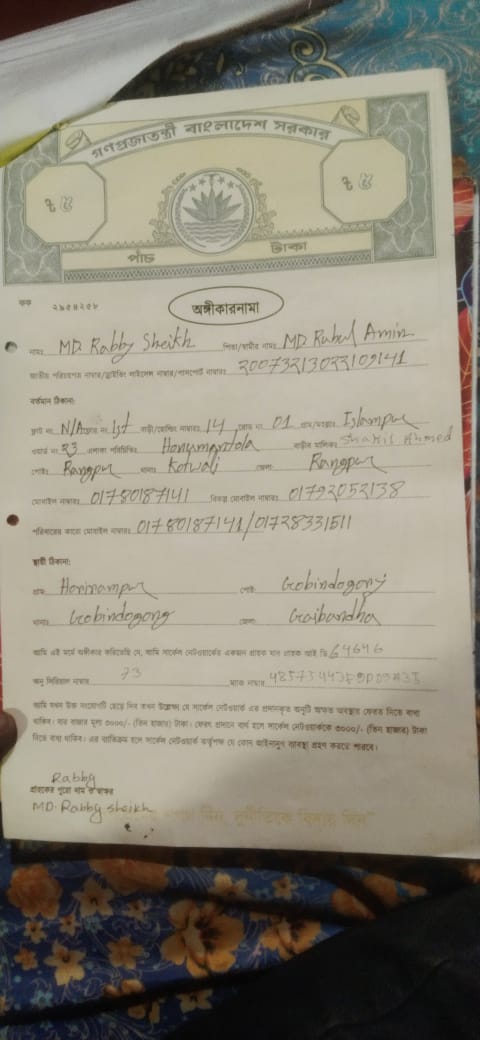 গণপ্রজাতন্ত্রী বাংলাদেশ সরকার
৳ ৫ ৳ ৫
পাঁচ টাকা
কক ২৯৫৪২৫৮
অঙ্গীকারনামা
নামঃ MD. Rabby Sheikh পিতা/স্বামীর নামঃ MD. Rubul Amin
জাতীয় পরিচয়পত্র নাম্বার/ড্রাইভিং লাইসেন্স নাম্বার/পাসপোর্ট নাম্বারঃ 20073213022109141
বর্তমান ঠিকানা:
ফ্লাট নং N/A ফ্লোর নং 1st বাড়ী/হোল্ডিং নাম্বারঃ 14 রোড নং 01 গ্রাম/মহল্লাঃ Islampur
ওয়ার্ড নং 23 এলাকা পরিচিতিঃ Honumantola বাড়ীর মালিকঃ Shakil Ahmed
পোষ্টঃ Rangpur থানাঃ Kotwali জেলাঃ Rangpur
মোবাইল নাম্বারঃ 01780187141 বিকল্প মোবাইল নাম্বারঃ 01792052138
পরিবারের কারো মোবাইল নাম্বারঃ 01780187141/01728331511
স্থায়ী ঠিকানা:
গ্রামঃ Horirampur পোষ্টঃ Gobindogonj
থানাঃ Gobindogong জেলাঃ Gaibandha
আমি এই মর্মে অঙ্গীকার করিতেছি যে, আমি সার্কেল নেটওয়ার্কের একজন গ্রাহক যার গ্রাহক আই ডি 64646
অনু সিরিয়াল নাম্বার 73 ম্যাক নাম্বার
আমি যখন উক্ত সংযোগটি ছেড়ে দিব তখন উল্লেখ্য যে সার্কেল নেটওয়ার্ক এর প্রদানকৃত অনুটি অক্ষত অবস্থায় ফেরত দিতে বাধ্য
থাকিব। যার বাজার মূল্য ৩০০০/- (তিন হাজার) টাকা। ফেরৎ প্রদানে ব্যর্থ হলে সার্কেল নেটওয়ার্ককে ৩০০০/- (তিন হাজার) টাকা
দিতে বাধ্য থাকিব। এর ব্যতিক্রম হলে সার্কেল নেটওয়ার্ক কর্তৃপক্ষ যে কোন আইনানুগ ব্যবস্থা গ্রহণ করতে পারবে।
Rabby
গ্রাহকের পুরো নাম ও স্বাক্ষর
MD. Rabby sheikh
দিন, দুর্নীতিকে বিদায় দিন"